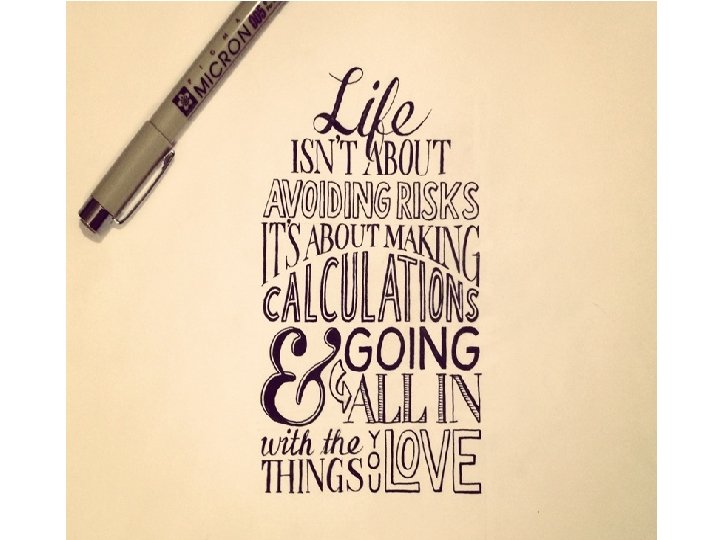 PIGMA
MICRON 005
Life
ISN'T ABOUT
AVOIDING RISKS
IT'S ABOUT MAKING
CALCULATIONS
& GOING
ALL IN
with the YOU LOVE
THINGS